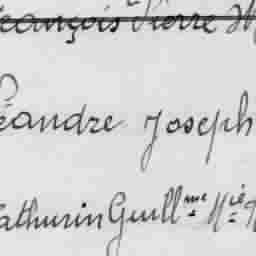 François Pierre
Léandre Joseph
Mathurin Guillme Mie